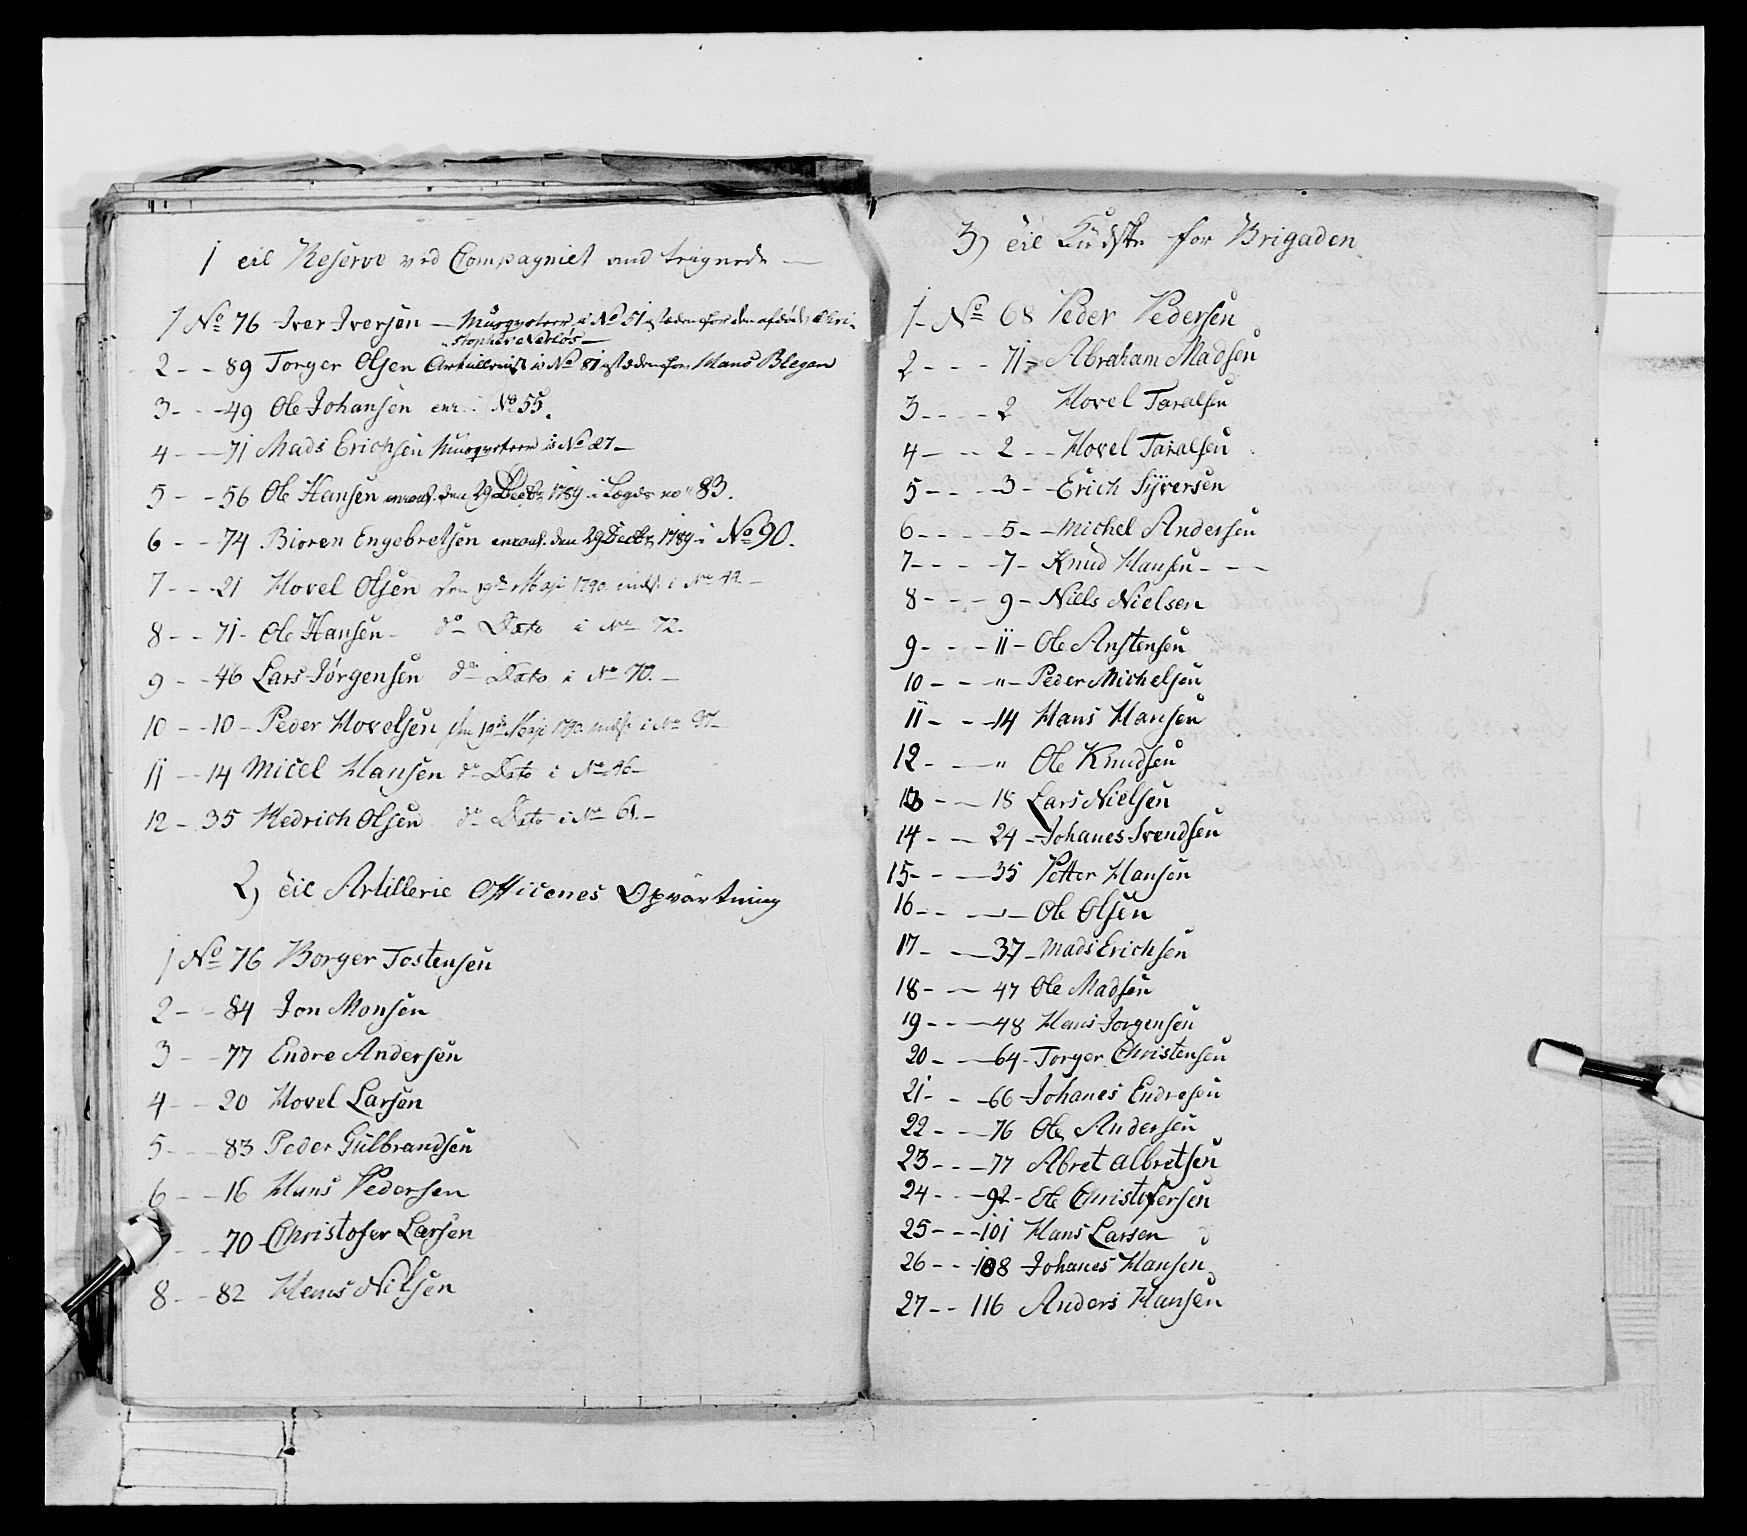 1 til Reserve ved Compagniet and
1 No 76 Iver Iversen — Musqveteer i No 51 istedenfor den afdöde Chri-
stopher
2 - - 89 Torger Olsen Artillerist i No 81 istedenfor Hans Blegen
3 - - 49 Ole Johansen enr. i No 55.
4 - - 71 Mads Erichsen Musqveteer i No 27 —
5 - - 56 Ole Hansen enroul. den 29 Decbr 1789 i Lægds no 83.
6 - - 74 Bioren Engebretsen enroul. den 29 Decbr 1789 i No 90.
7 - - 21 Hovel Olsen den 19de Maji 1790 i No 42 —
8 - - 71 - Ole Hansen - do Dato i No 72.
9 - - 46 Lars Jørgensen do Dato i No 70. —
10 - - 10 - Peder Hovelsen den 19de Maji 1790 i No 97 —
11 - - 14 Micel Hansen do Dato i No 46 —
12 - 35 Hedrich Olsen do Dato i No 61. —
2) til Artillerie Officenes Opvartning
1 No 76 Borger Tostensen
2 - - 84 Jon Monsen
3 - - 77 Endre Andersen
4 - - 20 Hovel Larsen
5 - - - 83 Peder Gulbrandsen
6 - - 16 Hans Pedersen
- - 70 Christofer Larsen
8 - - 82 Hans Nilsen
3) til Kudske for Brigaden
1 - No 68 Peder Pedersen
2 - - - 71 - Abraham Madsen
3 - - - - 2 Hovel Taralsen
4 - - - 2 - - Hovel Taralsen
5 - - - - 3 - - Erich Syversen
6 - - - - 5 - - Michel Andersen
7 - - - - 7 - Knud Hansen - - -
8 - - - - 9 - Niels Nielsen
9 - - - 11 - Ole Anstensen
10 - - - " - Peder Michelsen
11 - - - 14 Hans Hansen
12 - - - " Ole Knudsen
13 - - - 18 Lars Nielsen
14 - - - 24 - Johanes Svendsen
15 - - - - 35 Petter Hansen
16 - - - " - Ole Olsen
17 - - - 37 - Mads Erichsen
18 - - - 47 Ole Madsen
19 - - - 48 Hans Jorgensen
20 - - - 64 - Torger Christensen
21 - - - 66 - Johanes Endresen
22 - - - 76 Ole Andersen
23 - - - 77 Abret albretsen
24 - - - 92 - Ole Christofersen
25 - - - 101 Hans Larsen
26 - - - 108 Johanes Hansen
27 - - 116 Anders Hansen